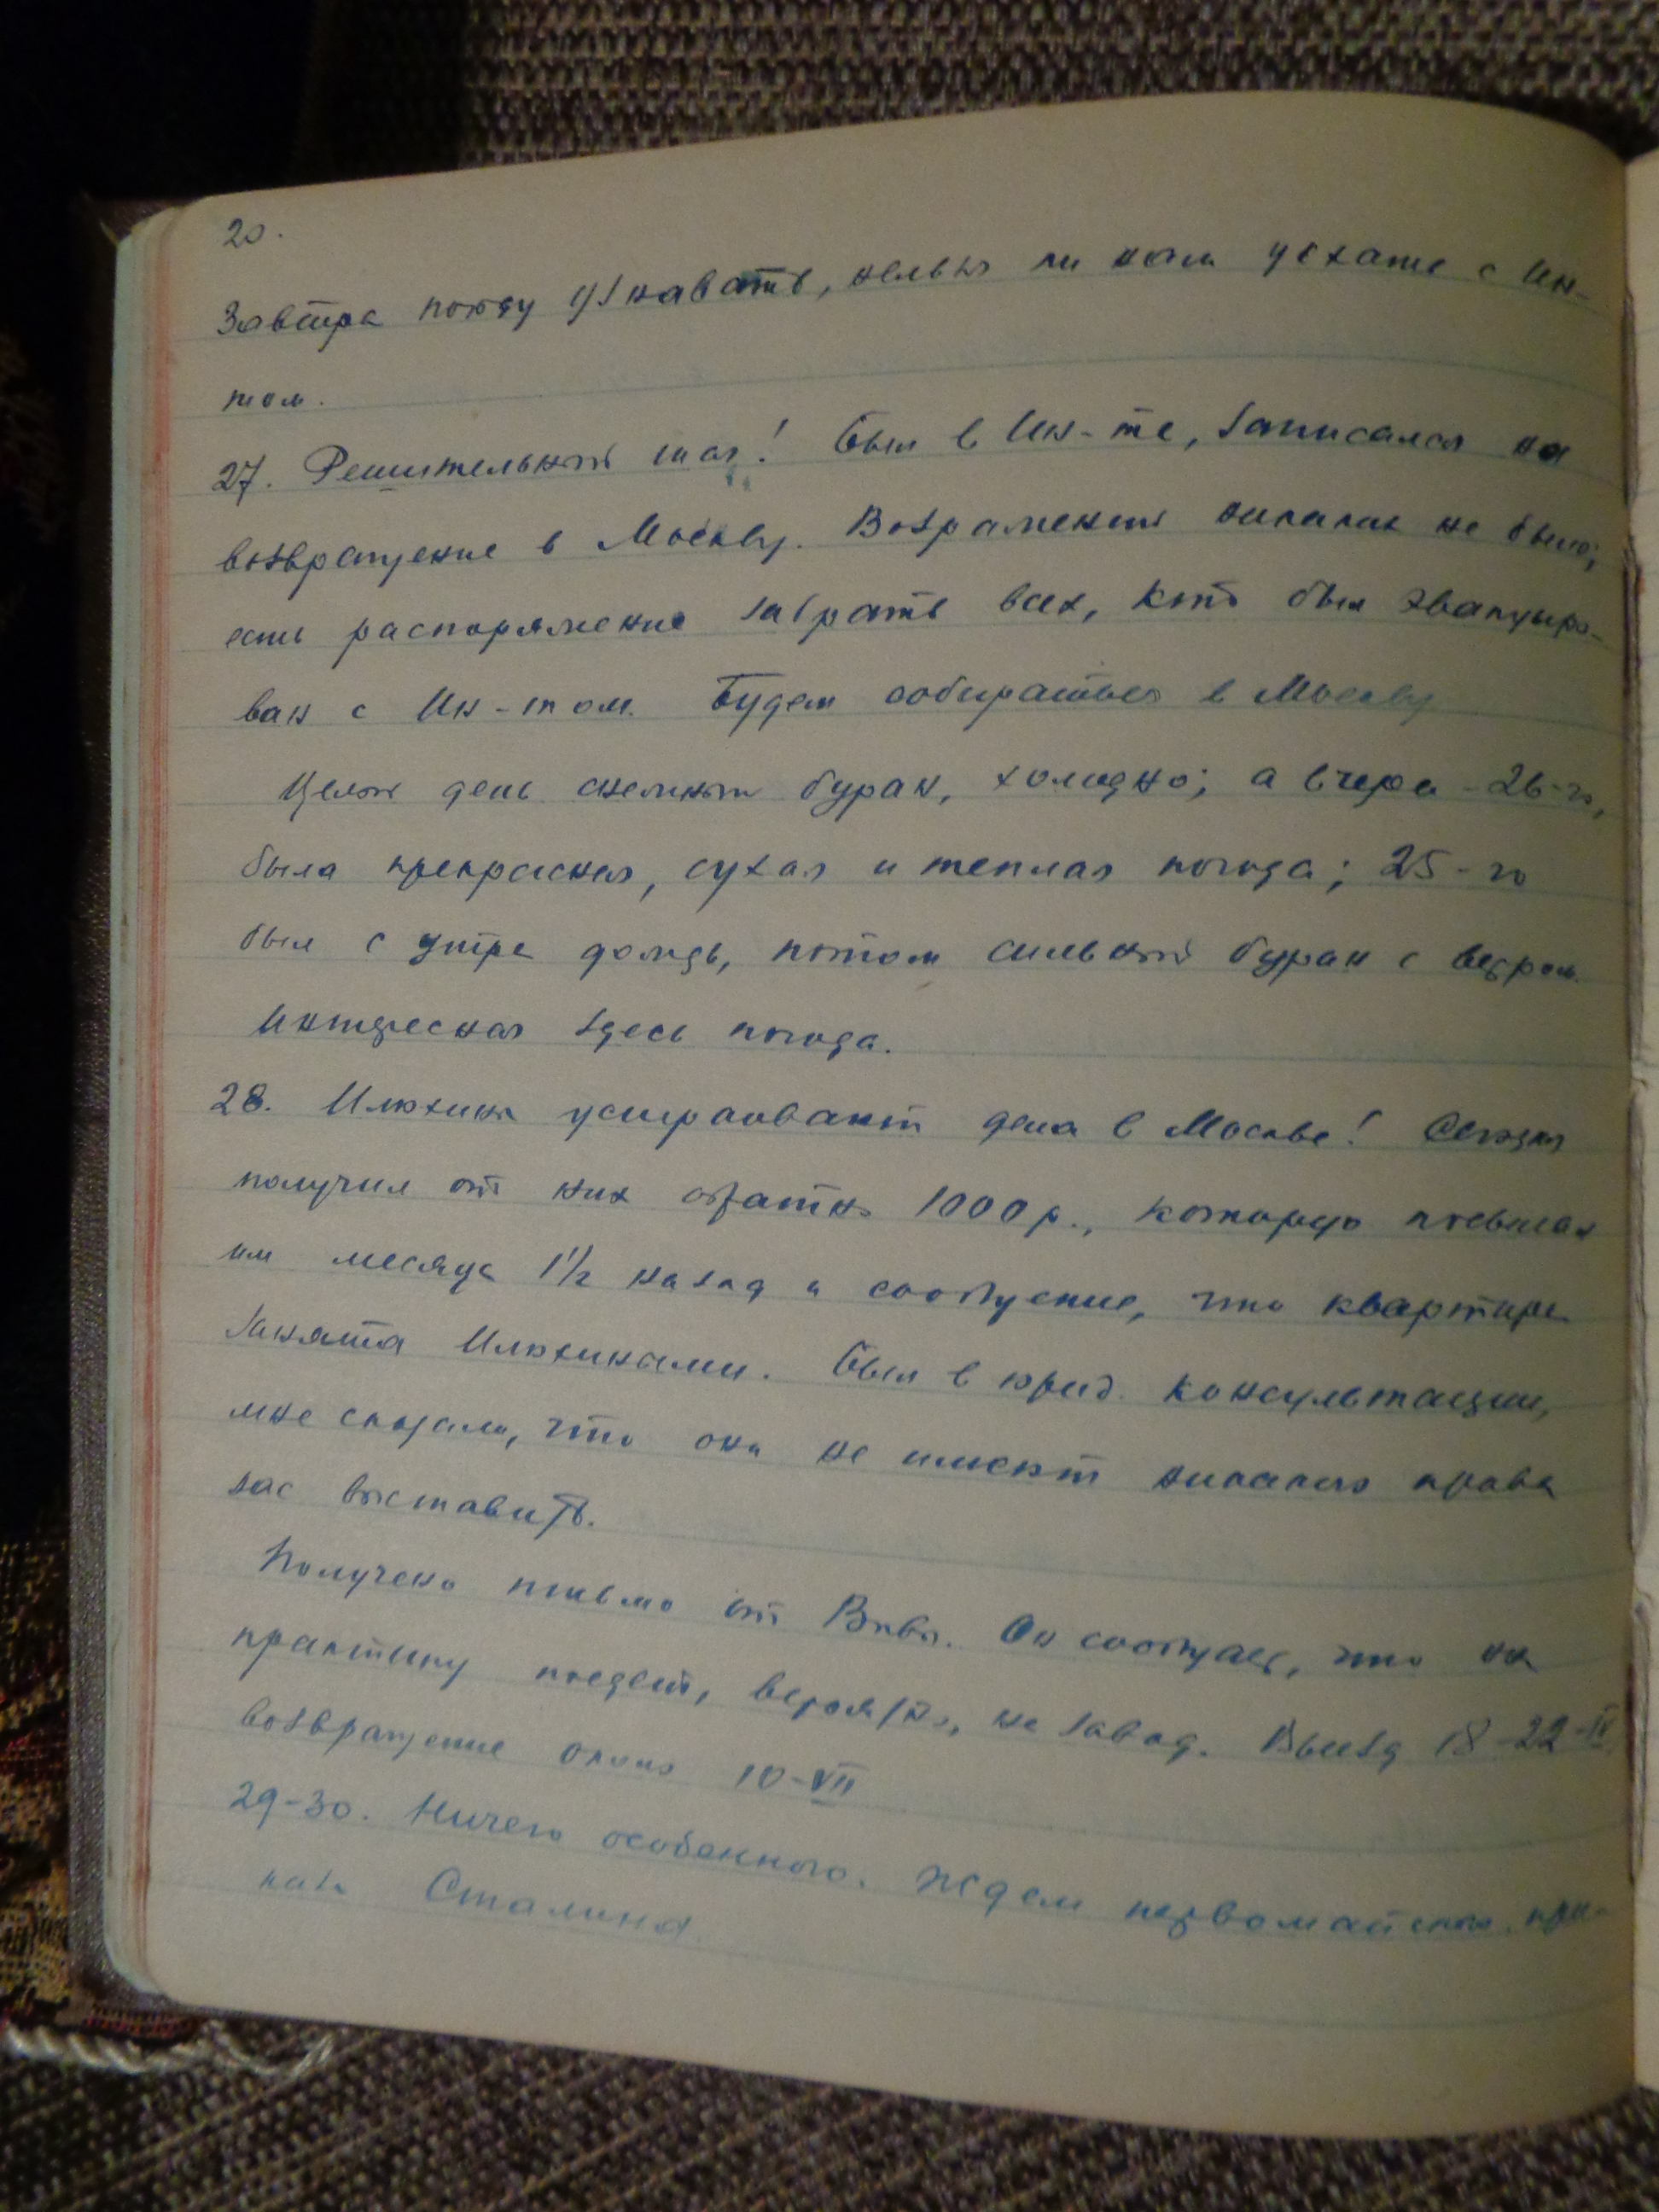 20.
Завтра пойду узнавать, нельзя ли нам уехать с Ин-
том.
27. Решительный шаг! Был в Ин-те, записался на
возвращение в Москву. Возражений никаких не было;
есть распоряжение забрать всех, кто был эвакуиро-
ван с Ин-том. Будем собираться в Москву
Целый день снежный буран, холодно; а вчера - 26-го,
была прекрасная, сухая и теплая погода; 25-го
был с утра дождь, потом сильный буран с ветром.
Интересная здесь погода.
28. Илюхины устраивают дела в Москве! Сегодня
получил от них обратно 1000 р., которую послал
им месяца 1½ назад и сообщение, что квартира
занята Илюхиными. Был в юрид. консультации,
мне сказали, что они не имеют никакого права
нас выставить.
Получено письмо от Вовы. Он сообщает, что на
практику поедет, вероятно, на завод. Выезд 18-22-IV
возвращение около 10-VII
29-30. Ничего особенного. Ждем первомайского при-
каза Сталина.